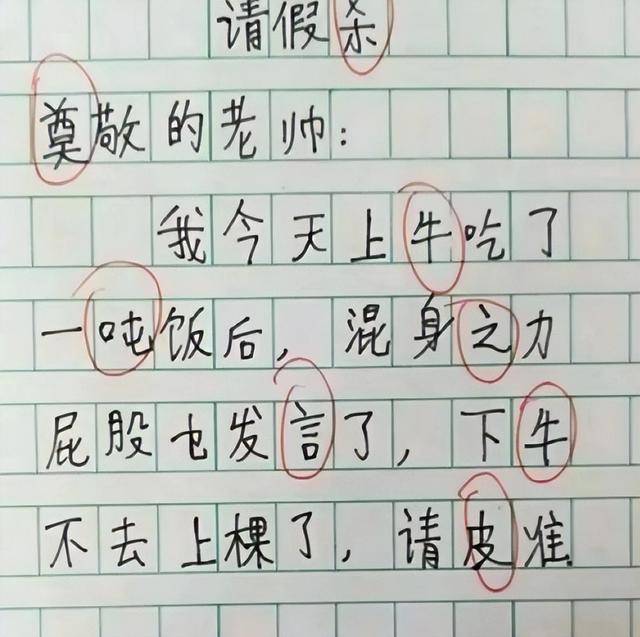 请假
奠敬的老帅：
我今天上牛吃了
一吨饭后，混身之力
屁股也发言了，下牛
不去上棵了，请皮准